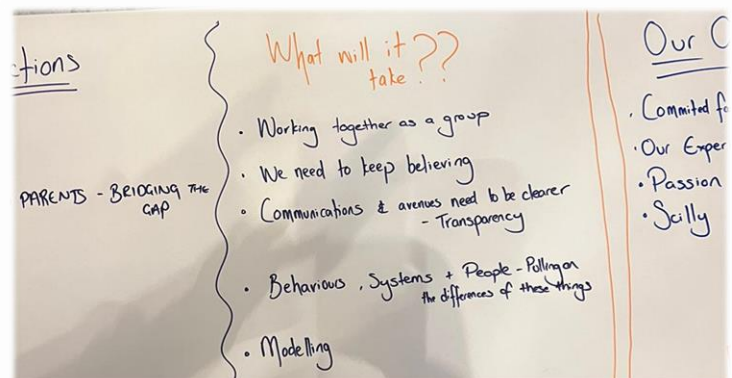 ctions
PARENTS - BRIDGING THE
GAP
What will it
take ??
• Working together as a group
• We need to keep believing
• Communications & avenues need to be clearer
- Transparency
• Behaviours, Systems + People - Pulling on
the differences of these things
• Modelling
Our C
• Commited fo
• Our Exper
• Passion
• Scilly